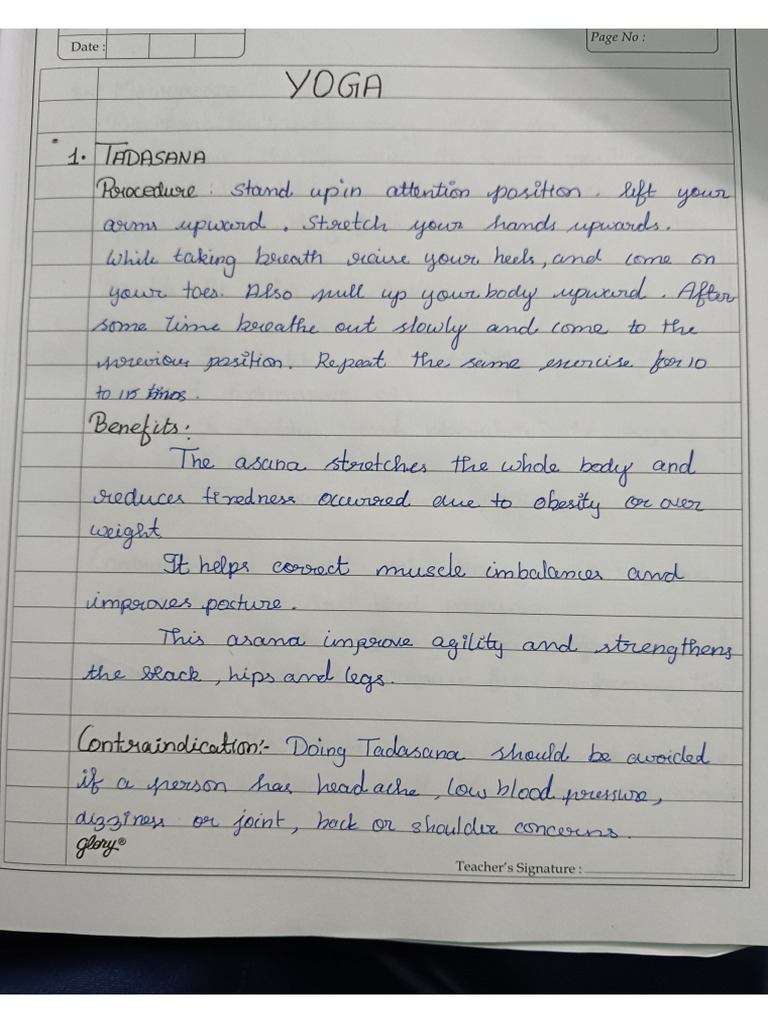 Date :
Page No :
YOGA
1. TADASANA
Procedure : Stand up in attention position. lift your
arms upward. Stretch your hands upwards.
While taking breath raise your heels, and come on
your toes. Also pull up your body upward. After
some time breathe out slowly and come to the
previous position. Repeat the same exercise for 10
to 15 times.
Benefits :
The asana stretches the whole body and
reduces tiredness occurred due to obesity or over
weight
It helps correct muscle imbalances and
improves posture.
This asana improve agility and strengthens
the back, hips and legs.
Contraindication:- Doing Tadasana should be avoided
if a person has headache, low blood pressure,
dizziness or joint, back or shoulder concerns.
glory®
Teacher's Signature :